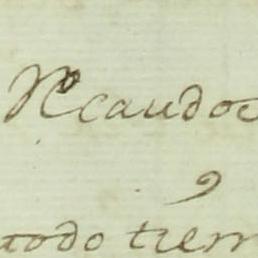 Recaudoc
todo tierr